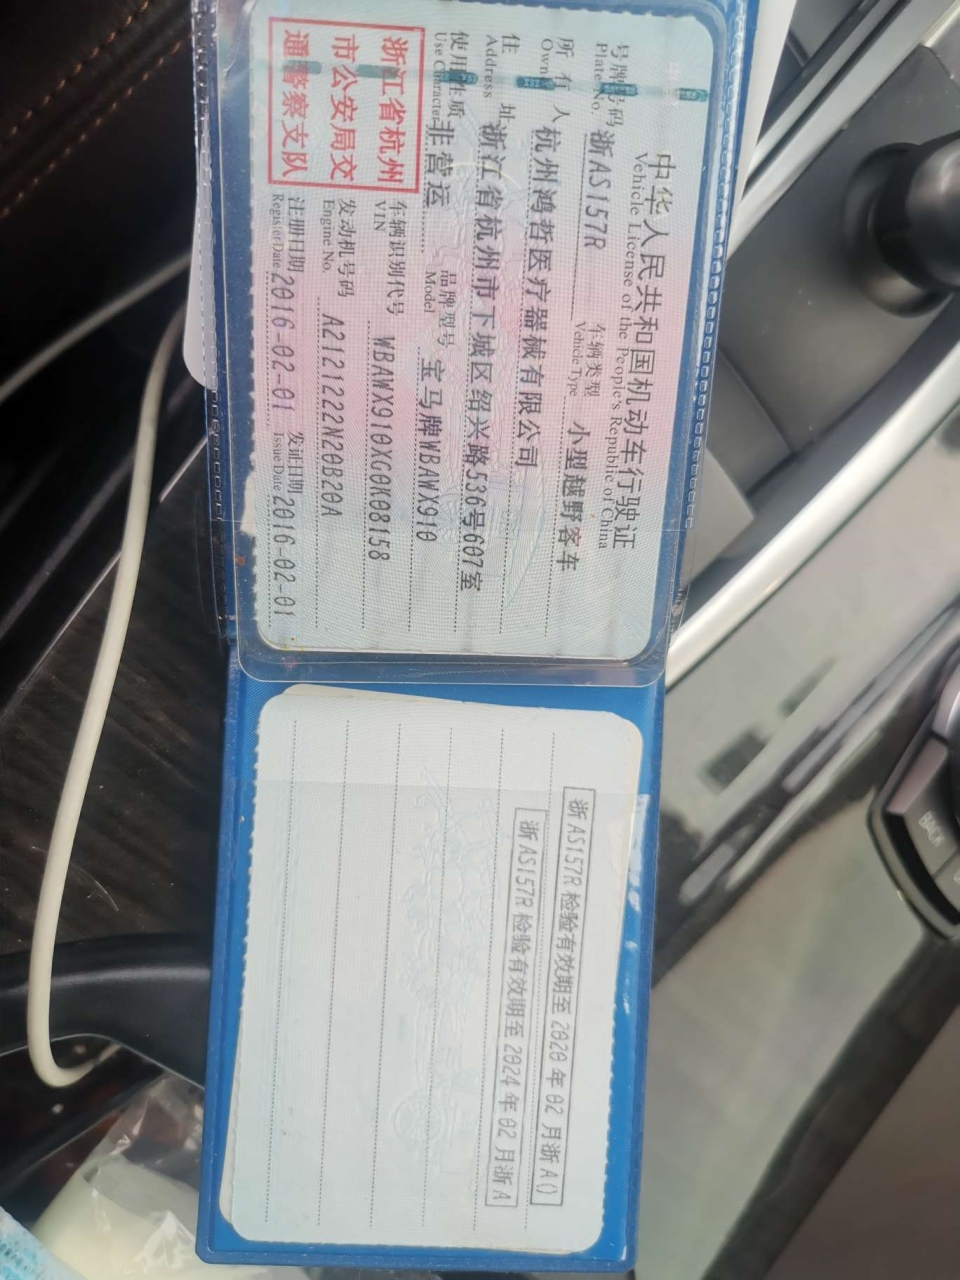 中华人民共和国机动车行驶证
Vehicle License of the People's Republic of China
号牌号码 浙AS157R 车辆类型 小型越野客车
Plate No. Vehicle Type
所有人 杭州鸿哲医疗器械有限公司
Owner
住址 浙江省杭州市下城区绍兴路536号607室
Address
使用性质 非营运 品牌型号 宝马牌WBAWX910
Use Character Model
浙江省杭州
市公安局交
通警察支队
车辆识别代号 WBAWX910XG0K08158
VIN
发动机号码 A2121222N20B20A
Engine No.
注册日期 2016-02-01 发证日期 2016-02-01
Register Date Issue Date
浙AS157R 检验有效期至 2020 年 02 月浙A()
浙AS157R 检验有效期至 2024 年 02 月浙A
BACK